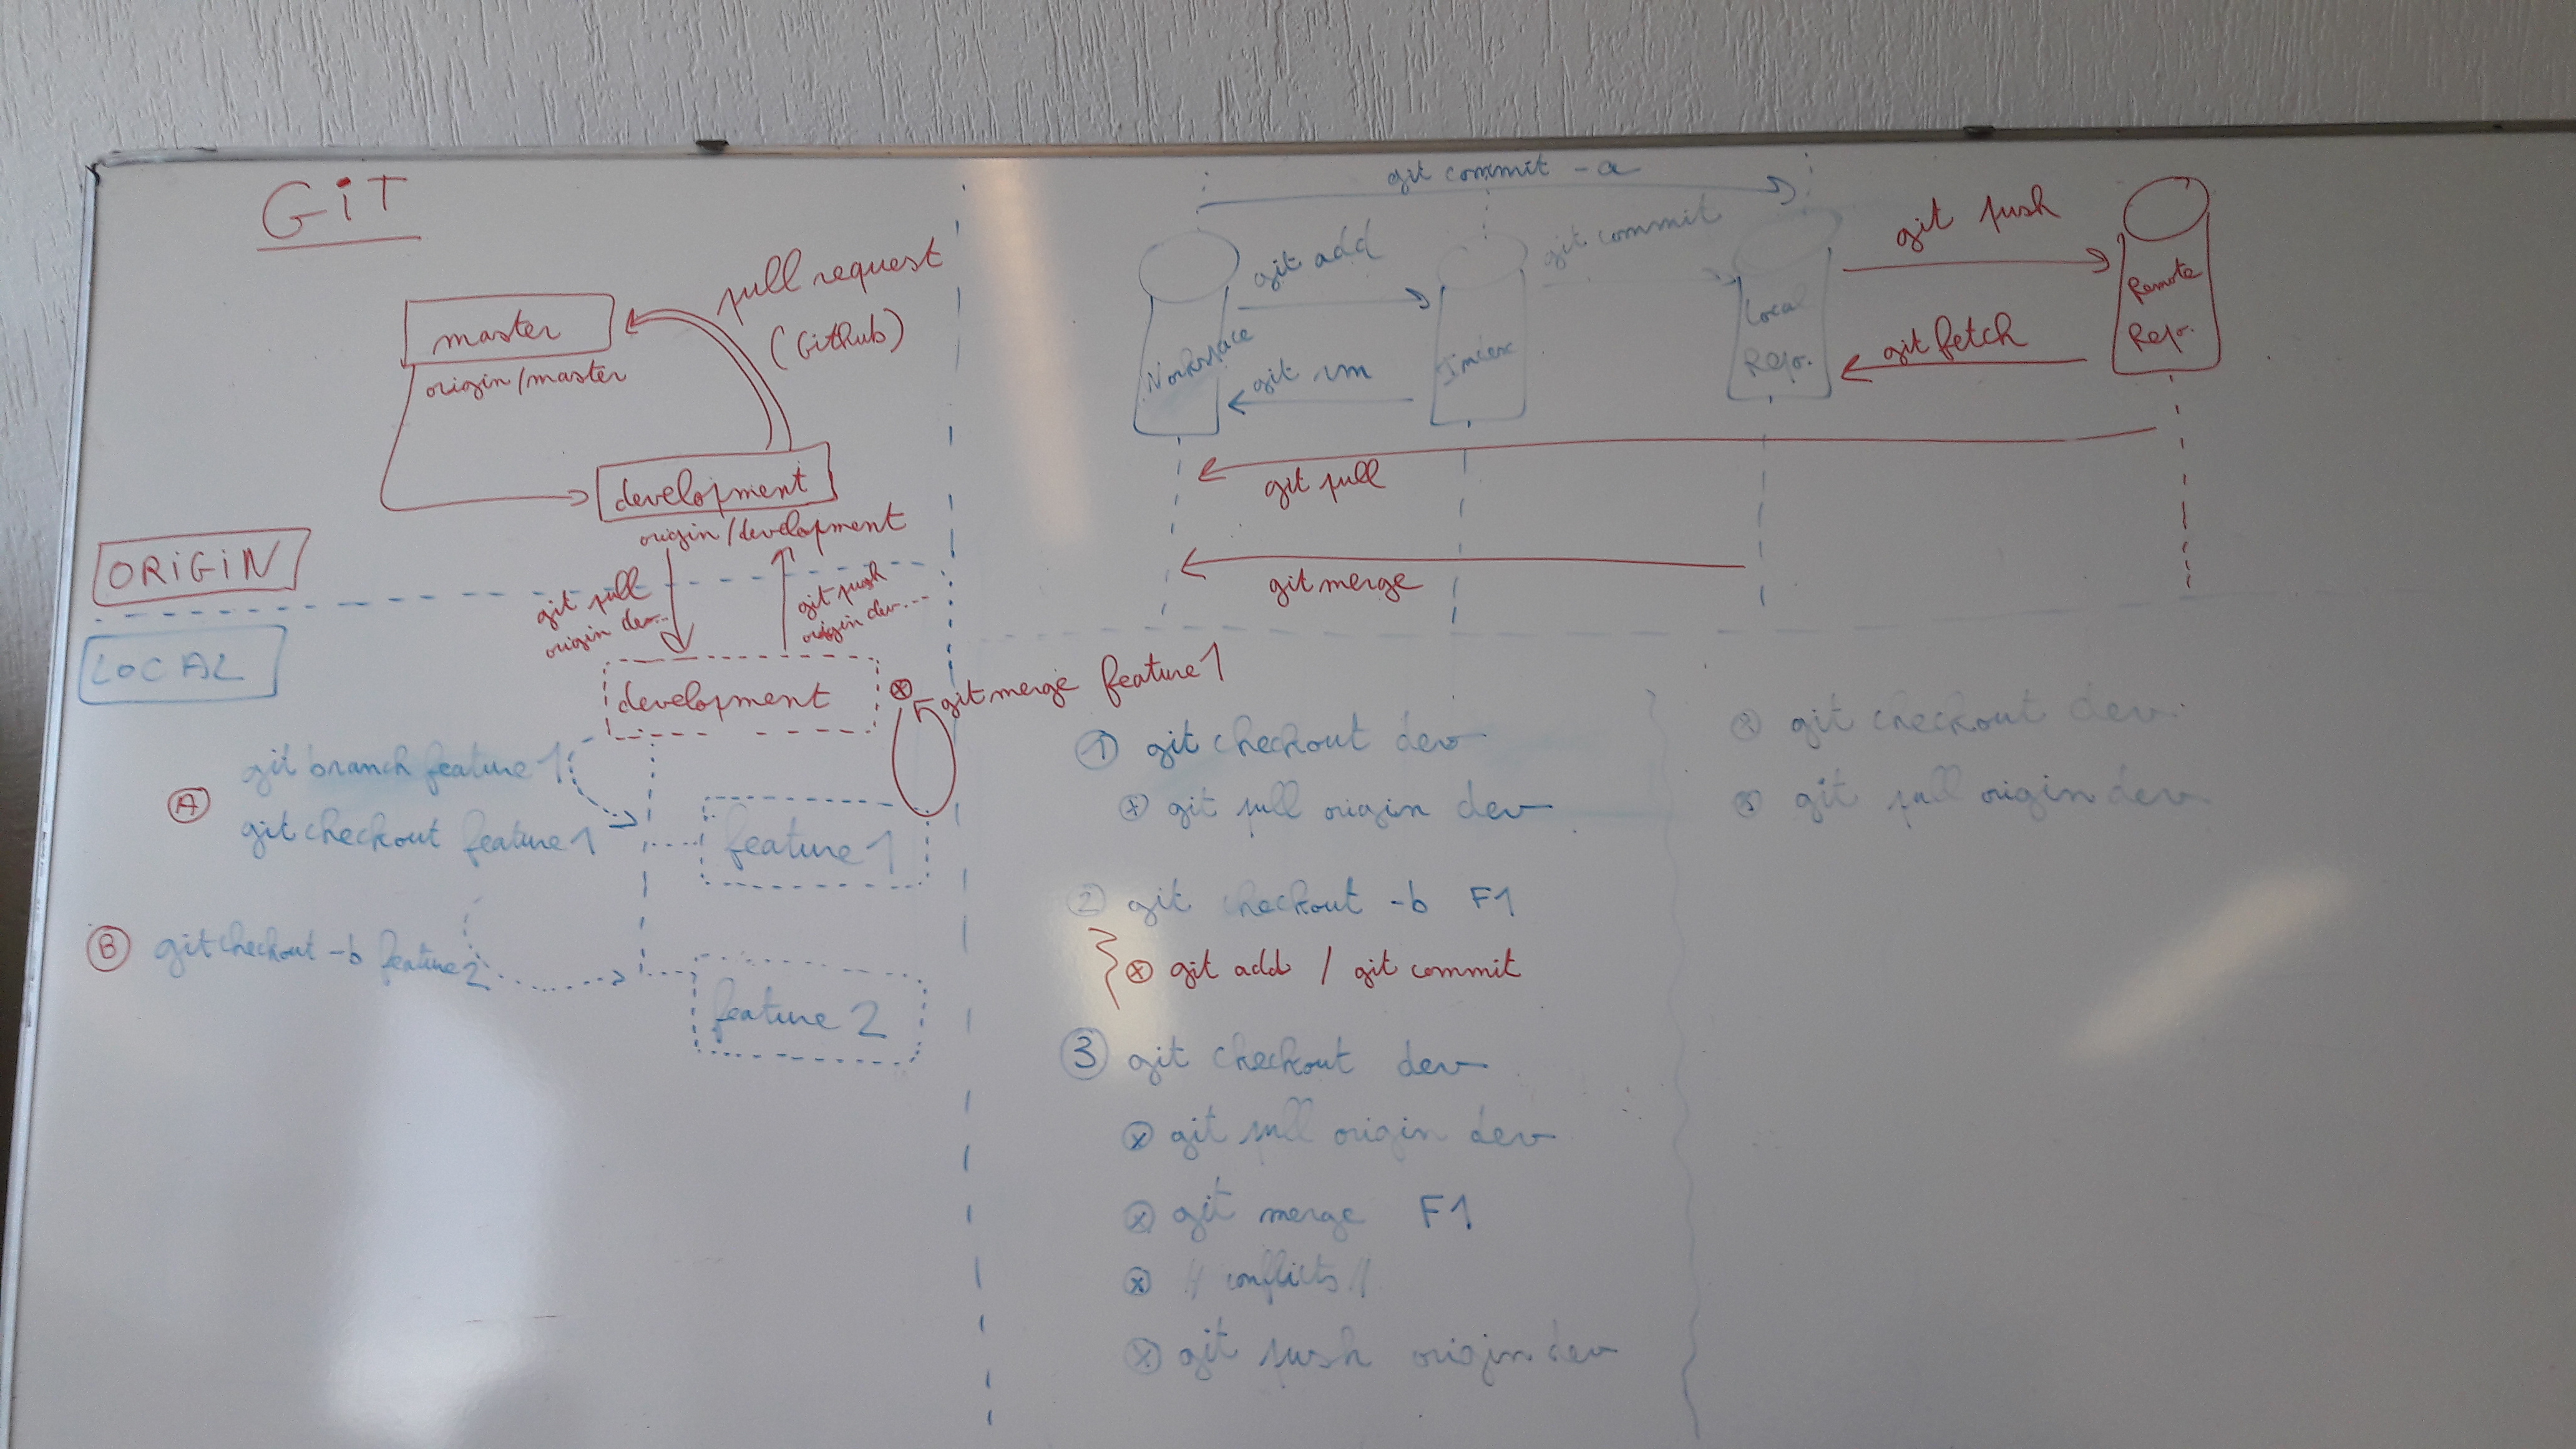 GiT
master
origin/master
pull request
(GitHub)
development
origin/development
ORiGiN
git pull
origin dev...
git push
origin dev...
LOCAL
development
git merge feature 1
git branch feature 1
A
git checkout feature 1
feature 1
B git checkout -b feature 2
feature 2
git commit -a
git add
git commit
git push
Workspace
git rm
Index
Local
Repo.
git fetch
Remote
Repo.
git pull
git merge
1 git checkout dev
git pull origin dev
2 git checkout -b F1
git add / git commit
3 git checkout dev
git pull origin dev
git merge F1
// conflicts //
git push origin dev
git checkout dev
git pull origin dev